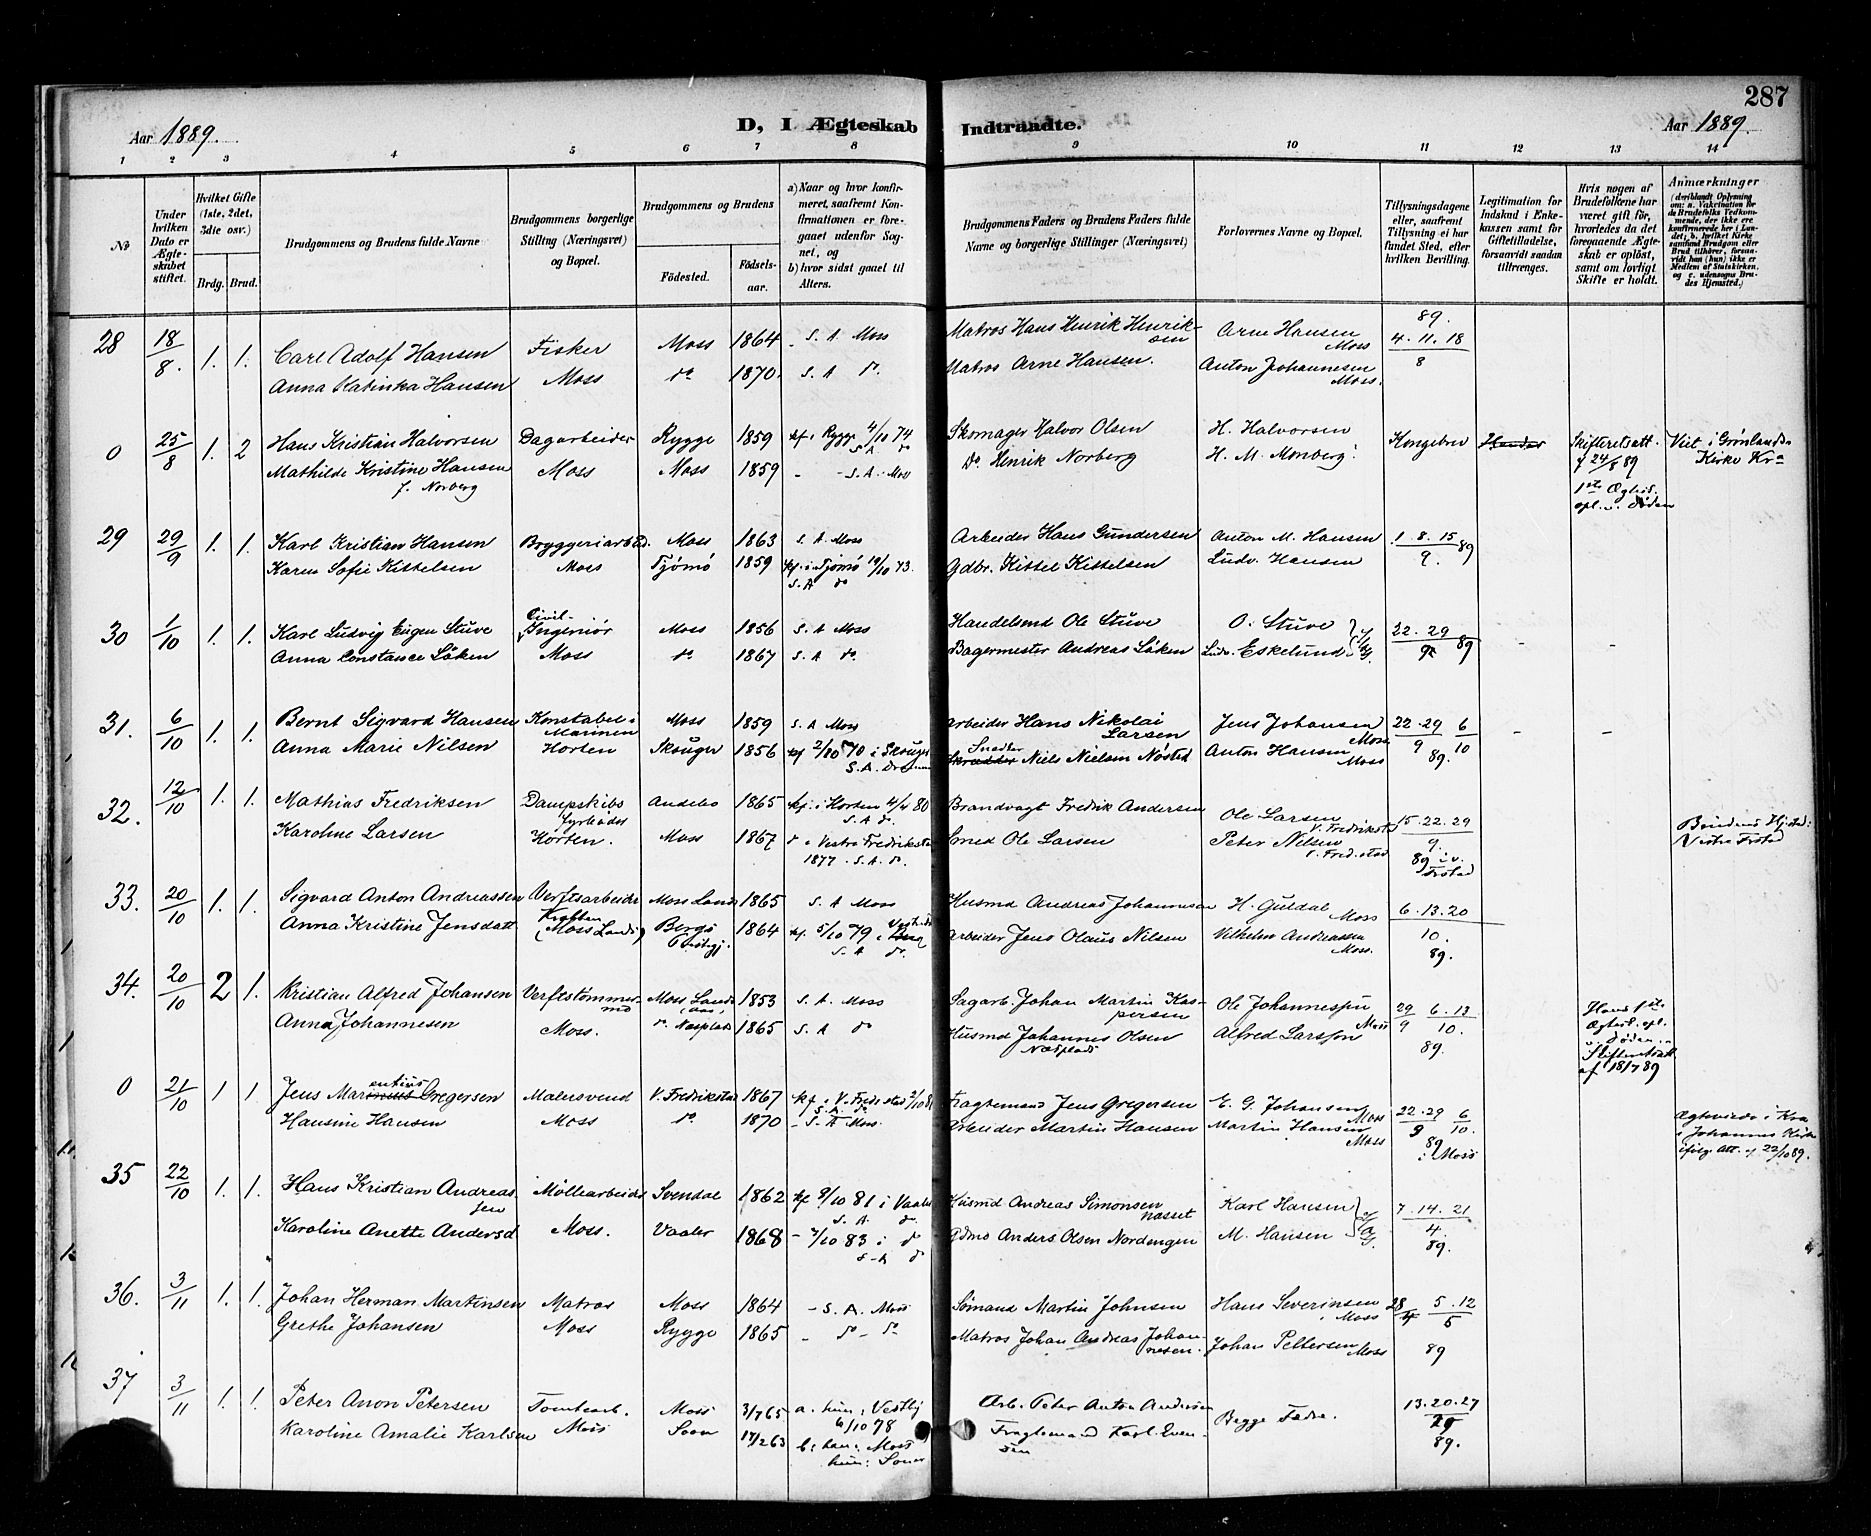 287
Aar 1889.
D, I Ægteskab Indtraadte.
Aar 1889.
1 2 3 4 5 6 7 8 9 10 11 12 13 14
No
Under hvilken Dato er Ægteskabet stiftet.
Hvilket Gifte (1ste, 2det, 3die osv.)
Brdg. Brud.
Brudgommens og Brudens fulde Navne
Brudgommens borgerlige Stilling (Næringsvei) og Bopæl.
Brudgommens og Brudens
Fødested.
Fødselsaar.
a) Naar og hvor konfirmeret, saafremt Konfirmationen er foregaaet udenfor Sognet, og
b) hvor sidst gaaet til Alters.
Brudgommens Faders og Brudens Faders fulde Navne og borgerlige Stillinger (Næringsvei)
Forlovernes Navne og Bopæl.
Tillysningsdagene eller, saafremt Tillysning ei har fundet Sted, efter hvilken Bevilling.
Legitimation for Indskud i Enkekassen samt for Giftetilladelse, forsaavidt saadan tiltrænges.
Hvis nogen af Brudefolkene har været gift før, hvorledes da det foregaaende Ægteskab er opløst, samt om lovligt Skifte er holdt.
Anmærkninger
(deriblandt Oplysning om: a. Vakcination for de Brudefolks Vedkommende, der ikke ere konfirmerede her i Landet; b. hvilket Kirkesamfund Brudgom eller Brud tilhører, forsaavidt han (hun) ikke er Medlem af Statskirken, og c. udensogns Brudes Hjemsted.)
28 18/8. 1. 1. Carl Adolf Hansen Fisker Moss 1864 - S. A. Moss Matros Hans Henrik Henriksen Arne Hansen Moss 89. 4. 11. 18
Anna Katinka Hansen Moss do 1870. S. A do. Matros Arne Hansen. Anton Johannesen Moss. 8
0 25/8 1. 2 Hans Kristian Halvorsen Dagarbeider Rygge 1859 kf. i Rygge 4/10 74 S A do Skomager Halvor Olsen H. Halvorsen Kongebrev Skifteretsatt. f 24/8 89 Viet i Grønlands Kirke Kra
Mathilde Kristine Hansen f. Norberg Moss Moss 1859 - - S. A. Moss Do. Henrik Norberg H. M. Monberg. 1ste Ægtes. opl. v. Døden
29 29/9 1. 1. Karl Kristian Hansen Bryggeriarbeid. Moss 1863 S. A. Moss Arbeider Hans Gundersen Anton M. Hansen 1. 8. 15
Karen Sofie Kittelsen Moss Tjømø 1859 kf. i Tjømø 19/10 73. S. A do Gdbr. Kittel Kittelsen Ludv. Hansen 9. 89
30 1/10 1. 1. Karl Ludvig Eugen Stuve Civil-Ingeniør Moss 1856 S. A Moss Handelsmd Ole Stuve O. Stuve 22. 29
Anna Constance Løken Moss do 1867 S. A do. Bagermester Andreas Løken Ludv. Eskelund 9 89 - -
31. 6/10 1. 1. Bernt Sigvard Hansen Konstabel i Marinen Moss 1859 S. A Moss Arbeider Hans Nikolai Larsen Jens Johansen Moss 22. 29 6
Anna Marie Nilsen Horten Skouger 1856 kf 2/10 70 i Skouger S. A. Snedker Niels Nielsen Nøsted Anton Hansen Moss 9 10 89. - -
32. 12/10 1. 1. Mathias Fredriksen Dampskibsfyrbøder Andebo 1865 kf. i Horten 4/4 80 S A do. Brandvagt Fredrik Andersen Ole Larsen V. Fredrikstad 15. 22. 29
Karoline Larsen Horten. Moss 1867 do i Vestre Fredrikstad 1877. S. A. do. Smed Ole Larsen Peter Nilsen V. Fred.stad 9. 89 i V. Frstad Brudens Hjsted: Vestre Frstad
33. 20/10 1. 1. Sigvard Anton Andreassen Verftsarbeider Moss Lands 1865 S. A Moss Husmd Andreas Johannesen H. Guldal Moss 6. 13. 20
Anna Kristine Jensdatt Moss Landsg Bergø 1864 kf. 5/10 79 i S. A do. Arbeider Jens Olaus Nilsen Vilhelm Andreassen Moss. 10. 89.
34. 20/10 2 1. Kristian Alfred Johansen Verftstømmermd Moss Lands 1853 S. A. Moss Sagarb. Johan Martin Kaspersen Ole Johannesen 29 6. 13
Anna Johannesen Moss. do. Næsplads 1865 S. A do Husmd Johannes Olsen Næsplads Alfred Larsson Moss 9 10. 89. Hans 1ste Ægtesk. opl. v. Døden. Skifteretsatt. af 18/7 89
0 21/10 1 1 Jens Marentius Gregersen Malersvend V. Fredrikstad 1867 kf. i V. Fredrikstad 2/10 81 S. A. do. Fragtemand Jens Gregersen E. G. Johansen Moss 22. 29 6
Hansine Hansen Moss do 1870 - S. A Moss. Arbeider Martin Hansen Martin Hansen Moss 9 10. 89 i Moss Ægteviede i Kra i Johannes Kirke ifølge Att. af 22/10 89.
35 22/10 1. 1. Hans Kristian Andreassen Møllearbeider Svendal 1862 kf 9/10 81 i Vaaler S. A. do. Husmd Andreas Simonsen Karl Hansen 7. 14. 21
Karoline Anette Andersd Moss. Vaaler 1868 - 7/10 83 i do S-A do Gdmd Anders Olsen Nordengen M. Hansen 4. 89.
36. 3/11 1. 1. Johan Herman Martinsen Matros Moss 1864 - S. A. Moss Sømand Martin Johnsen Hans Severinsen Moss 28/4 5. 12/5
Grethe Johansen Moss Rygge 1865 - do - do Matros Johan Andreas Johannesen. Johan Pettersen Moss 89
37 3/11 1. 1. Peter Anon Petersen Tomtearb. Moss 3/7 65 a. hun: Vestby 6/10 78 Arb. Peter Anton Andersen Begge Fædre. 13. 20. 27
Karoline Amalie Karlsen Moss Soon 17/2 63 b: han: Moss hun: Soner Fragtemand Karl Evensen 10 89.